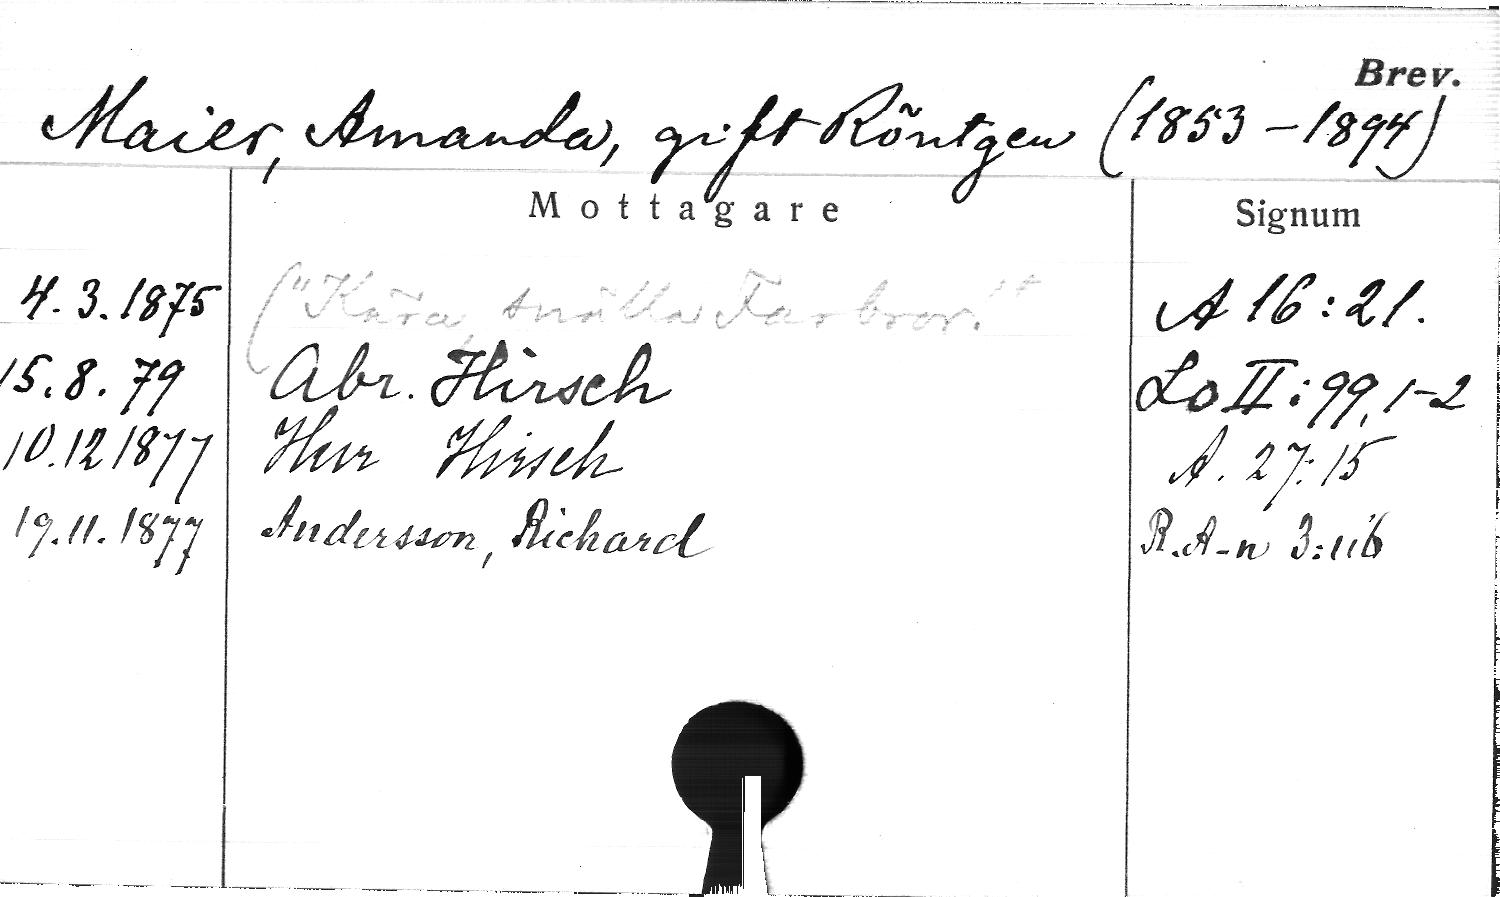 Brev.
Maier, Amanda, gift Röntgen (1853-1894)
Mottagare Signum
4.3.1875 ("Kära, snälla Farbror!" A 16:21.
15.8.79 Abr. Hirsch Lo II:99,1-2
10.12 1877 Herr Hirsch A. 27:15
19.11.1877 Andersson, Richard R.A-n 3: